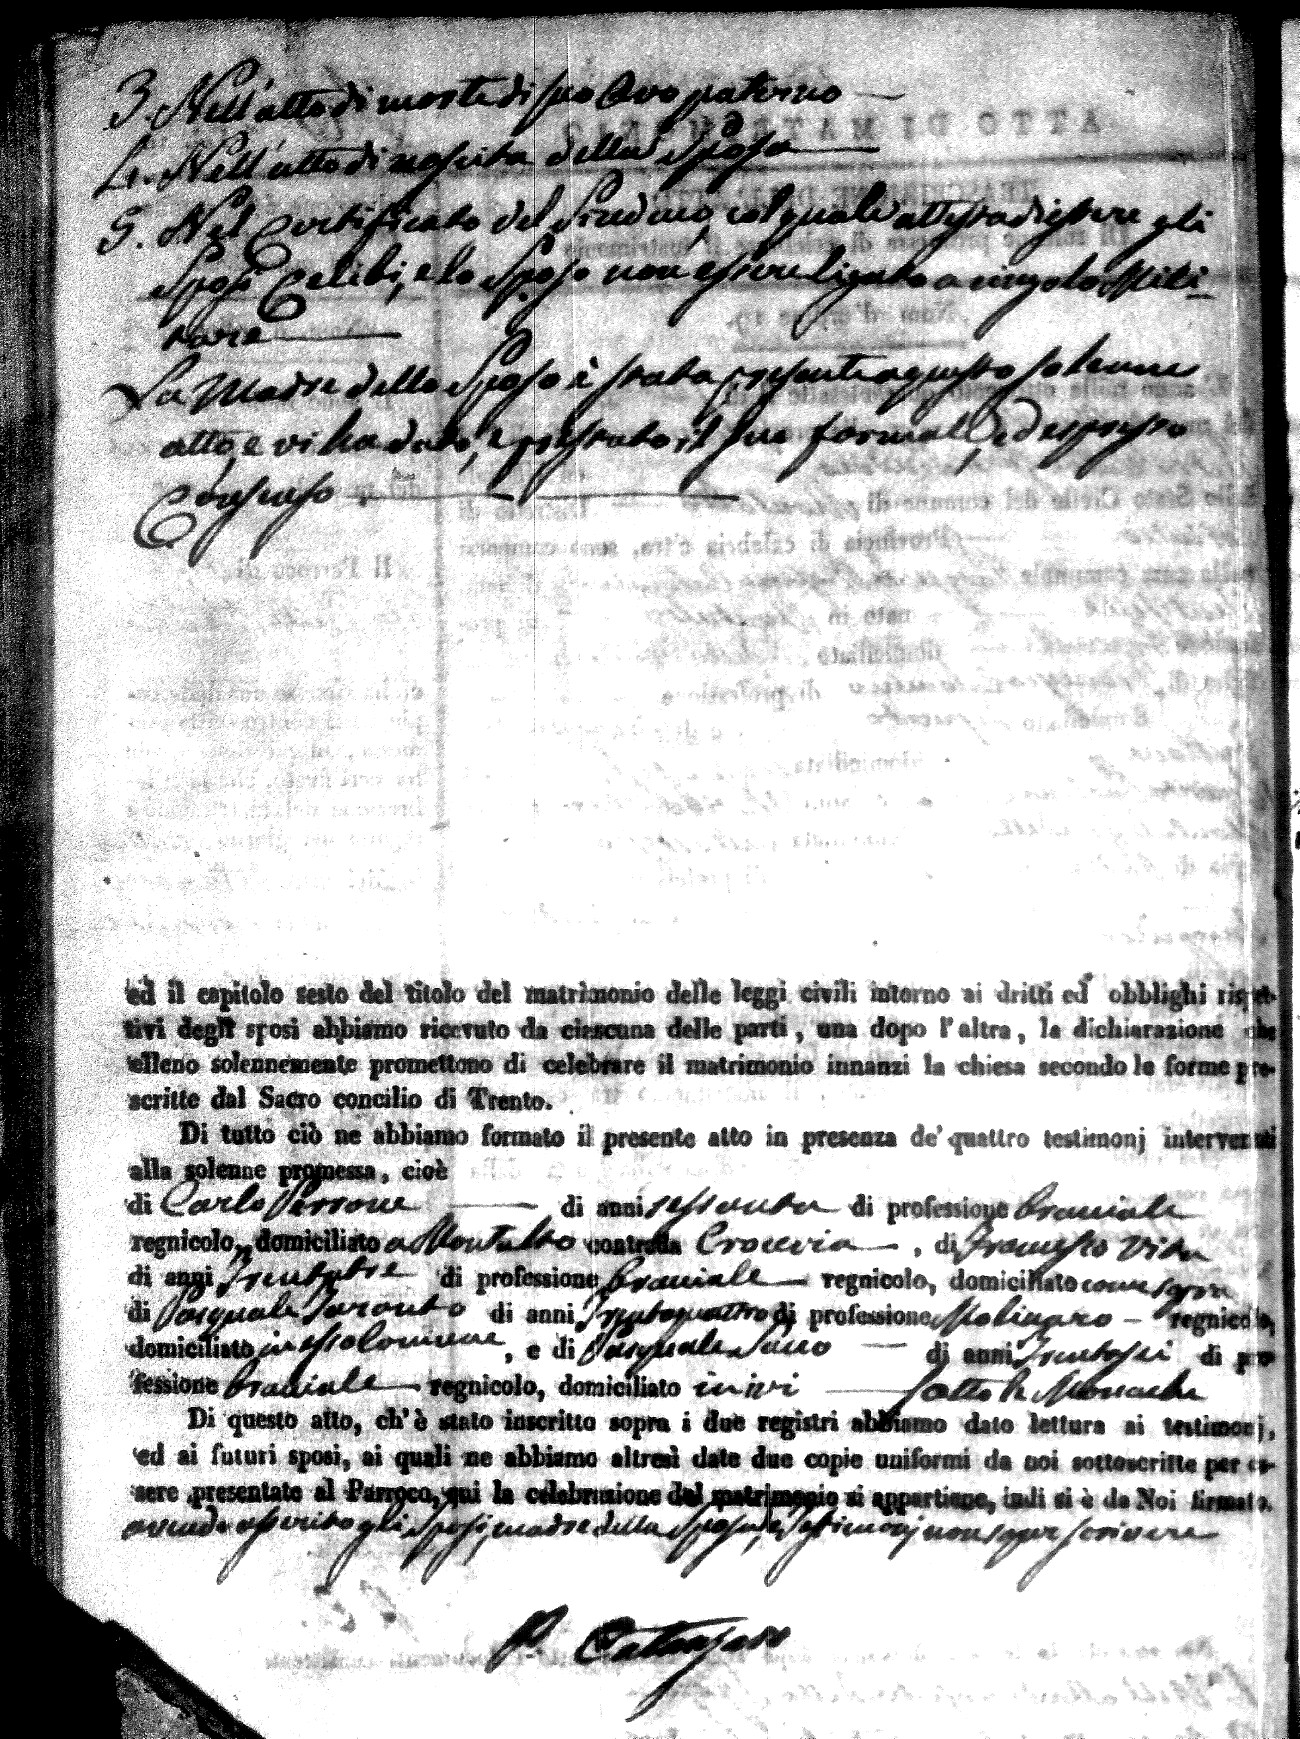 3. Nell'atto di morte di suo Avo paterno
4. Nell'atto di nascita della Sposa
5. Nel Certificato del Sindaco, col quale attesta di essere gli
Sposi Celibi, e lo Sposo non essere ligato a vincolo Mili-
tare
La Madre dello Sposo è stata presente a questo solenne
atto, e vi ha dato, e prestato il suo formale, ed espresso
Consenso
ed il capitolo sesto del titolo del matrimonio delle leggi civili intorno ai dritti ed obblighi rispet-
tivi degli sposi abbiamo ricevuto da ciascuna delle parti, una dopo l'altra, la dichiarazione che
elleno solennemente promettono di celebrare il matrimonio innanzi la chiesa secondo le forme pre-
scritte dal Sacro concilio di Trento.
Di tutto ciò ne abbiamo formato il presente atto in presenza de' quattro testimonj intervenuti
alla solenne promessa, cioè
di Carlo Perrone di anni sessanta di professione Braciale
regnicolo, domiciliato a Montalto contrada Crocevia, di Francesco Vita
di anni Trentatre di professione Braciale regnicolo, domiciliato come sopra
di Pasquale Taranto di anni Trentaquattro di professione Molinaro regnicolo,
domiciliato in, e di Pasquale di anni Trentasei di pro-
fessione Braciale regnicolo, domiciliato in ivi
Di questo atto, ch'è stato inscritto sopra i due registri abbiamo dato lettura ai testimonj,
ed ai futuri sposi, ai quali ne abbiamo altresì date due copie uniformi da noi sottoscritte per es-
sere presentate al Parroco, cui la celebrazione del matrimonio si appartiene, indi si è da Noi firmato.
avendo asserito gli Sposi, madre della Sposa, e testimonj non saper scrivere